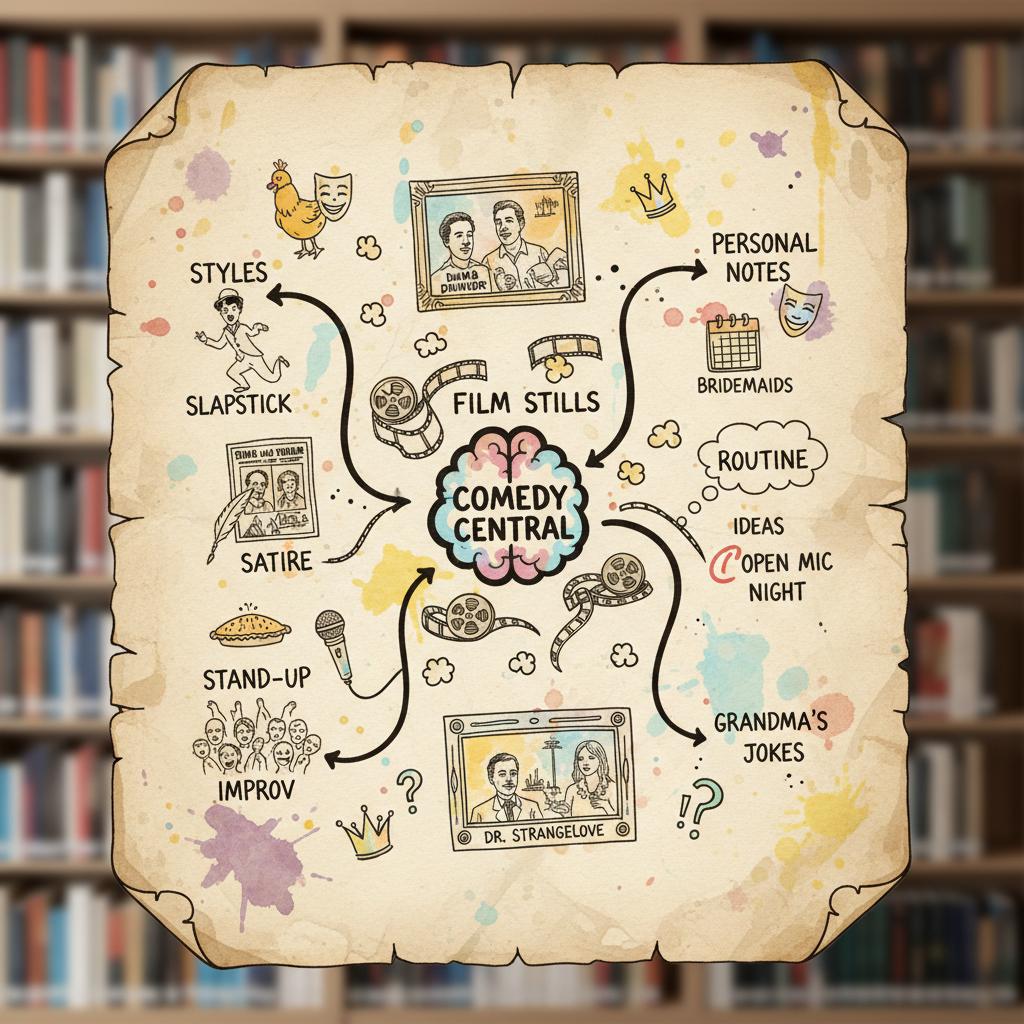 STYLES
SLAPSTICK
SATIRE
STAND-UP
IMPROV
FILM STILLS
COMEDY
CENTRAL
DR. STRANGELOVE
PERSONAL
NOTES
BRIDEMAIDS
ROUTINE
IDEAS
OPEN MIC
NIGHT
GRANDMA'S
JOKES